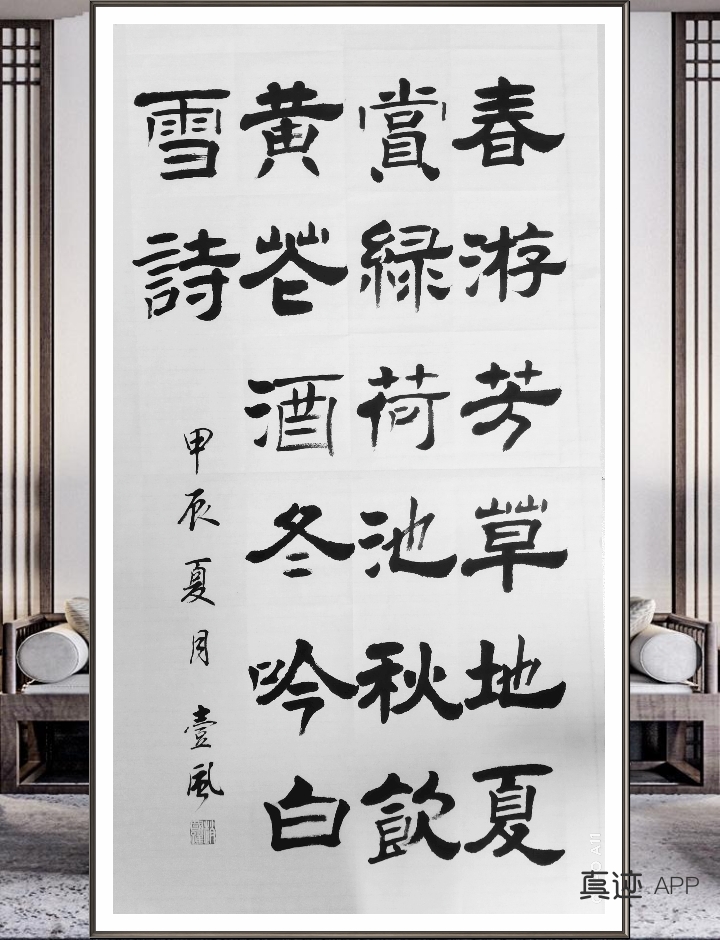 春游芳草地夏
賞緑荷池秋飲
黄花酒冬吟白
雪詩
甲辰夏月 壹風
真迹.APP